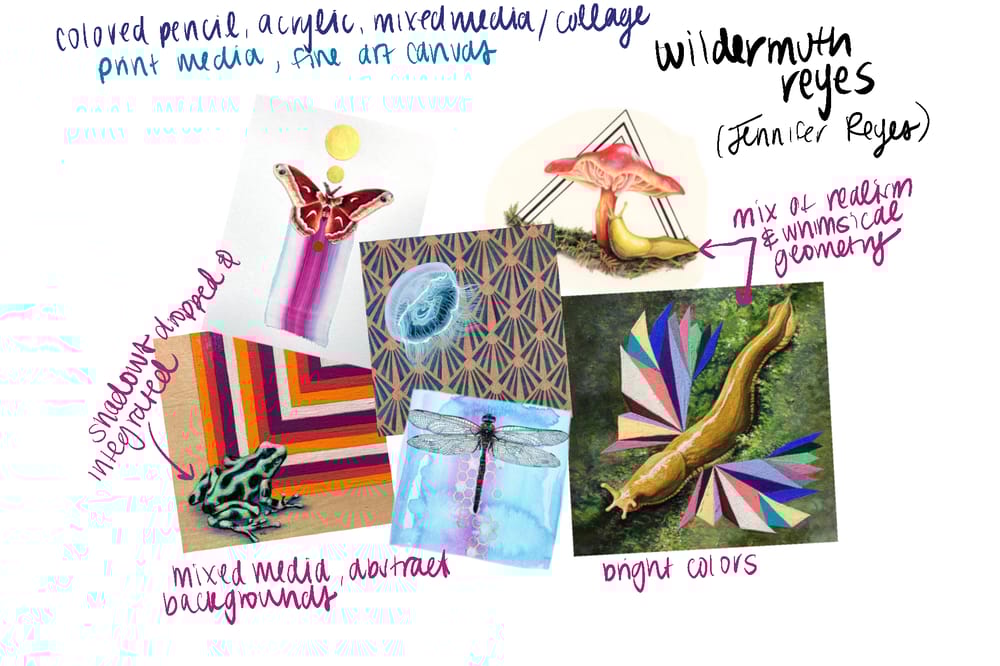 colored pencil, acrylic, mixed media/collage
print media, fine art canvas
wildermuth
reyes
(Jennifer Reyes)
mix of realism
& whimsical
geometry
shadows dropped &
integrated
mixed media, abstract
backgrounds
bright colors